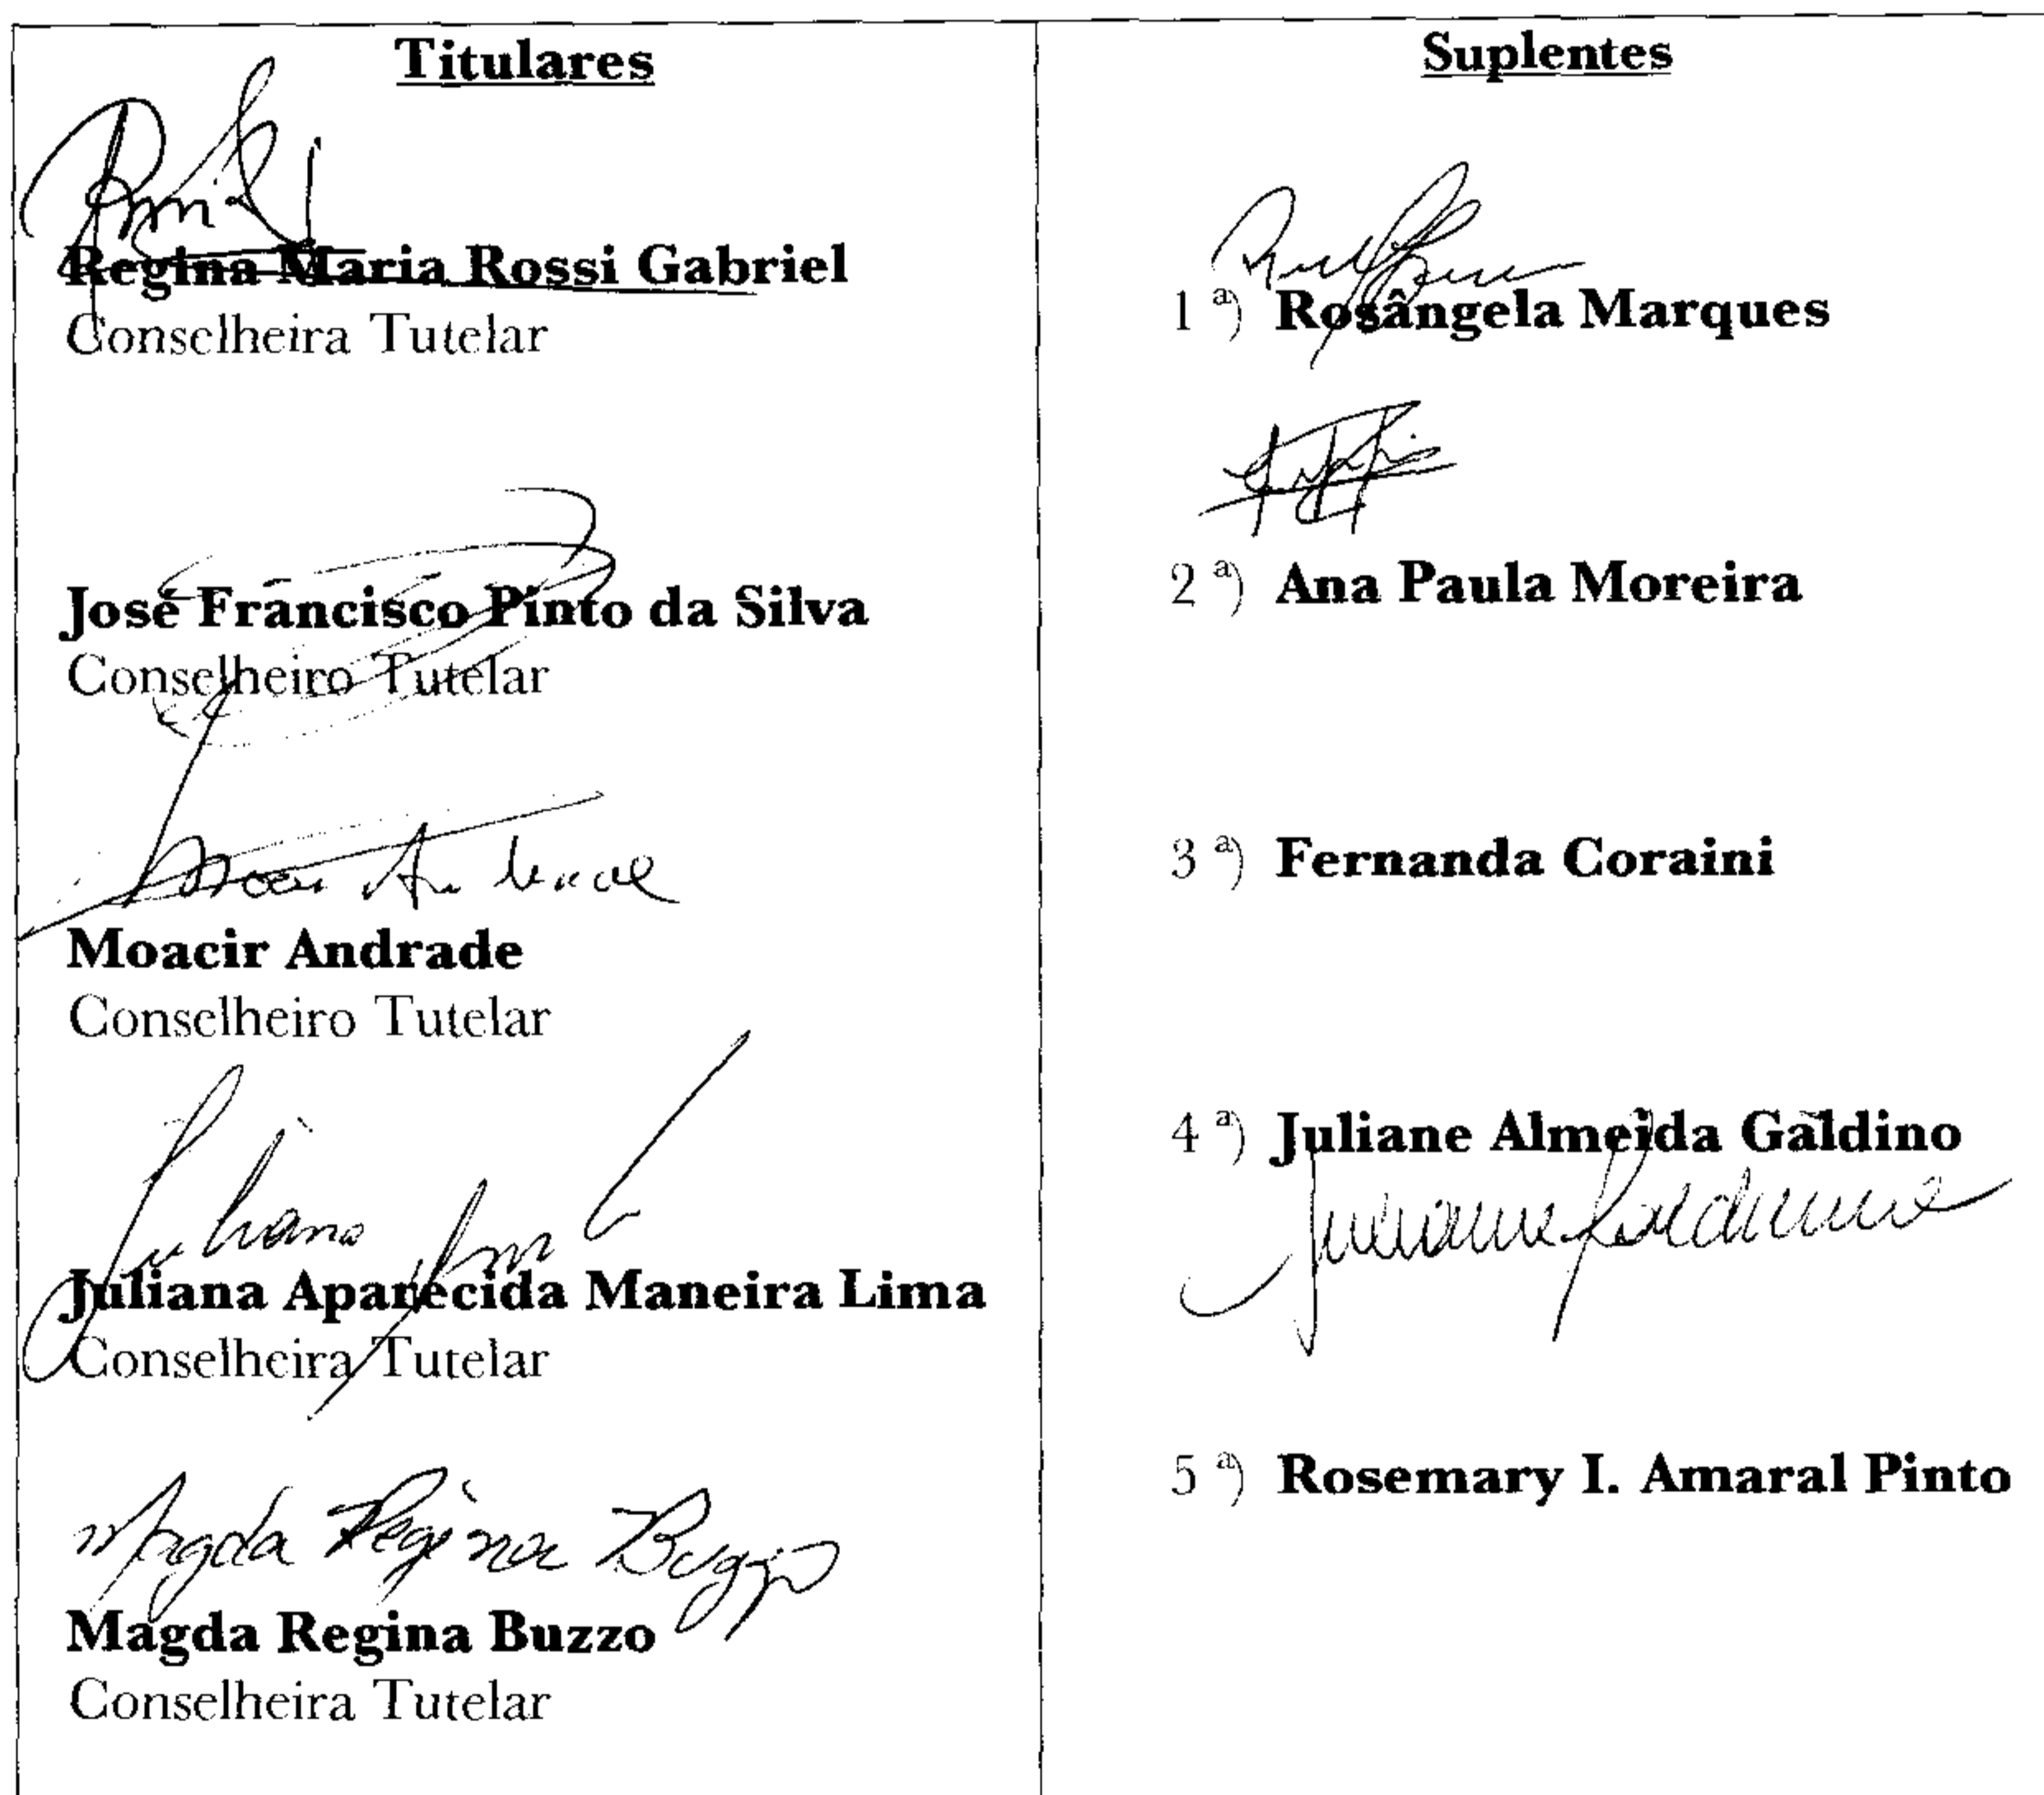 Titulares
Regina Maria Rossi Gabriel
Conselheira Tutelar
José Francisco Pinto da Silva
Conselheiro Tutelar
Moacir Andrade
Conselheiro Tutelar
Juliana
Juliana Aparecida Maneira Lima
Conselheira Tutelar
Magda Regina Buzzo
Magda Regina Buzzo
Conselheira Tutelar
Suplentes
1ª) Rosângela Marques
2ª) Ana Paula Moreira
3ª) Fernanda Coraini
4ª) Juliane Almeida Galdino
Juliane Galdino
5ª) Rosemary I. Amaral Pinto